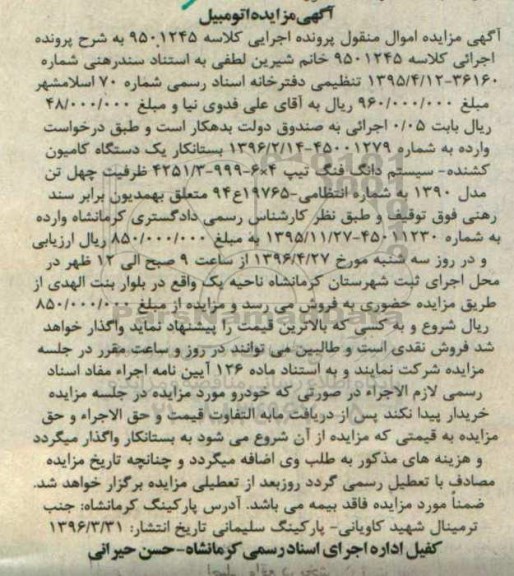 آگهی مزایده اتومبیل
آگهی مزایده اموال منقول پرونده اجرایی کلاسه ۹۵۰۱۲۴۵ به شرح پرونده
اجرائی کلاسه ۹۵۰۱۲۴۵ خانم شیرین لطفی به استناد سندرهنی شماره
۳۶۱۶۰-۱۳۹۵/۴/۱۲ تنظیمی دفترخانه اسناد رسمی شماره ۷۰ اسلامشهر
مبلغ ۹۶۰/۰۰۰/۰۰۰ ریال به آقای علی فدوی نیا و مبلغ ۴۸/۰۰۰/۰۰۰
ریال بابت ۰/۰۵ اجرائی به صندوق دولت بدهکار است و طبق درخواست
وارده به شماره ۴۵۰۰۱۲۷۹-۱۳۹۶/۲/۱۴ بستانکار یک دستگاه کامیون
کشنده- سیستم دانگ فنگ تیپ ۴×۶-۹۹۹-۴۲۵۱/۳ ظرفیت چهل تن
مدل ۱۳۹۰ به شماره انتظامی-۱۹۷۶۵ع۹۴ متعلق بهمدیون برابر سند
رهنی فوق توقیف و طبق نظر کارشناس رسمی دادگستری کرمانشاه وارده
به شماره ۴۵۰۰۱۲۳۰-۱۳۹۵/۱۱/۲۷ به مبلغ ۸۵۰/۰۰۰/۰۰۰ ریال ارزیابی
و در روز سه شنبه مورخ ۱۳۹۶/۴/۲۷ از ساعت ۹ صبح الی ۱۲ ظهر در
محل اجرای ثبت شهرستان کرمانشاه ناحیه یک واقع در بلوار بنت الهدی از
طریق مزایده حضوری به فروش می رسد و مزایده از مبلغ ۸۵۰/۰۰۰/۰۰۰
ریال شروع و به کسی که بالاترین قیمت را پیشنهاد نماید واگذار خواهد
شد فروش نقدی است و طالبین می توانند در روز و ساعت مقرر در جلسه
مزایده شرکت نمایند و به استناد ماده ۱۲۶ آیین نامه اجراء مفاد اسناد
رسمی لازم الاجراء در صورتی که خودرو مورد مزایده در جلسه مزایده
خریدار پیدا نکند پس از دریافت مابه التفاوت قیمت و حق الاجراء و حق
مزایده به قیمتی که مزایده از آن شروع می شود به بستانکار واگذار میگردد
و هزینه های مذکور به طلب وی اضافه میگردد و چنانچه تاریخ مزایده
مصادف با تعطیل رسمی گردد روزبعد از تعطیلی مزایده برگزار خواهد شد.
ضمناً مورد مزایده فاقد بیمه می باشد. آدرس پارکینگ کرمانشاه: جنب
ترمینال شهید کاویانی- پارکینگ سلیمانی تاریخ انتشار: ۱۳۹۶/۳/۳۱
کفیل اداره اجرای اسناد رسمی کرمانشاه- حسن حیرانی